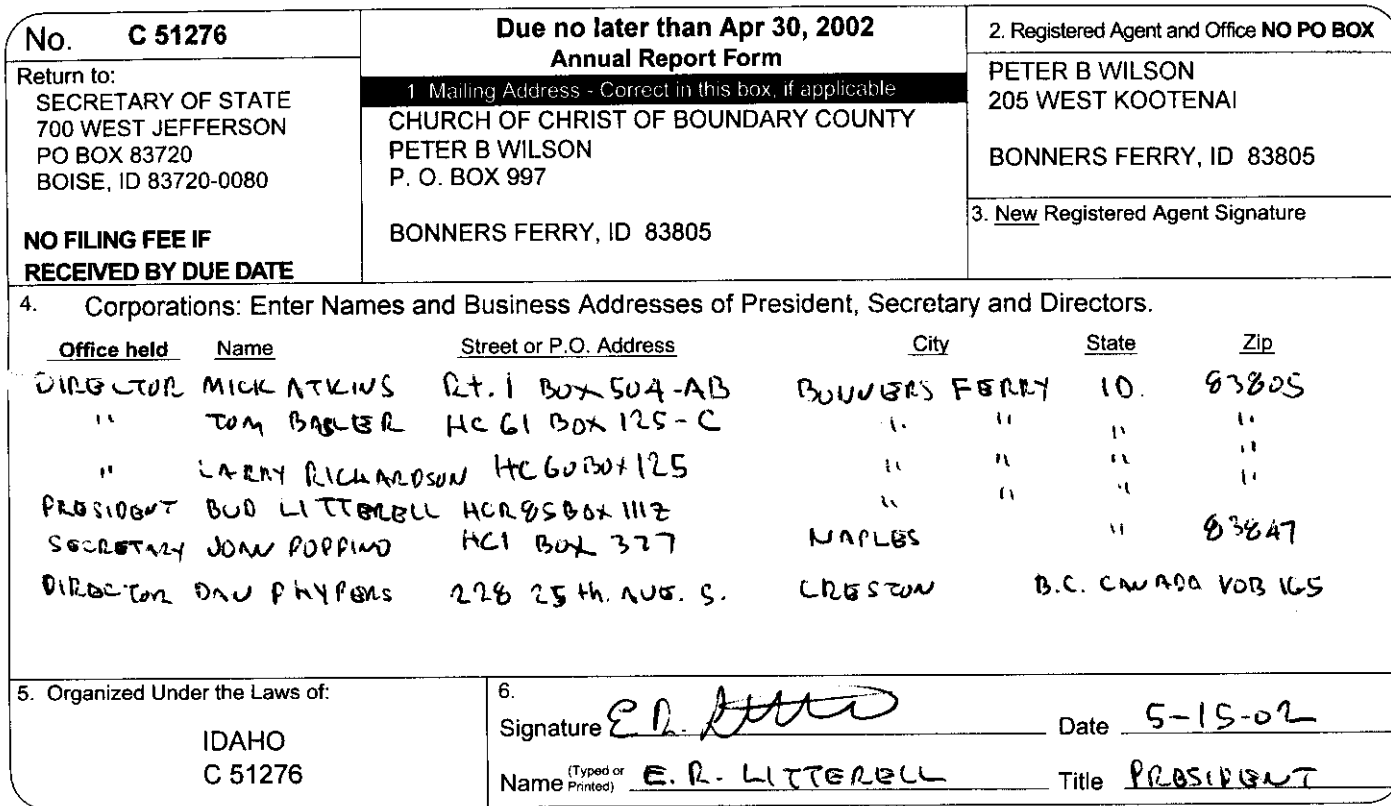 No. C 51276
Return to:
SECRETARY OF STATE
700 WEST JEFFERSON
PO BOX 83720
BOISE, ID 83720-0080
NO FILING FEE IF
RECEIVED BY DUE DATE
Due no later than Apr 30, 2002
Annual Report Form
1 Mailing Address - Correct in this box, if applicable
CHURCH OF CHRIST OF BOUNDARY COUNTY
PETER B WILSON
P. O. BOX 997
BONNERS FERRY, ID 83805
2. Registered Agent and Office NO PO BOX
PETER B WILSON
205 WEST KOOTENAI
BONNERS FERRY, ID 83805
3. New Registered Agent Signature
4. Corporations: Enter Names and Business Addresses of President, Secretary and Directors.
Office held Name Street or P.O. Address City State Zip
DIRECTOR MICK ATKINS Rt. 1 BOX 504-AB BONNERS FERRY ID. 83805
" TOM HC 61 BOX 125-C " " " "
" LARRY RICHARDSON HC 60 BOX 125 " " " "
PRESIDENT BUD LITTERELL HCR 85 BOX 111Z " " " "
SECRETARY JOAN POPPINO HC1 BOX 327 NAPLES " 83847
DIRECTOR DAN PHYPERS 228 25th. AVE. S. CRESTON B.C. CANADA V0B 1G5
5. Organized Under the Laws of:
IDAHO
C 51276
6.
Signature E. R. Date 5-15-02
Name (Typed or Printed) E. R. LITTERELL Title PRESIDENT